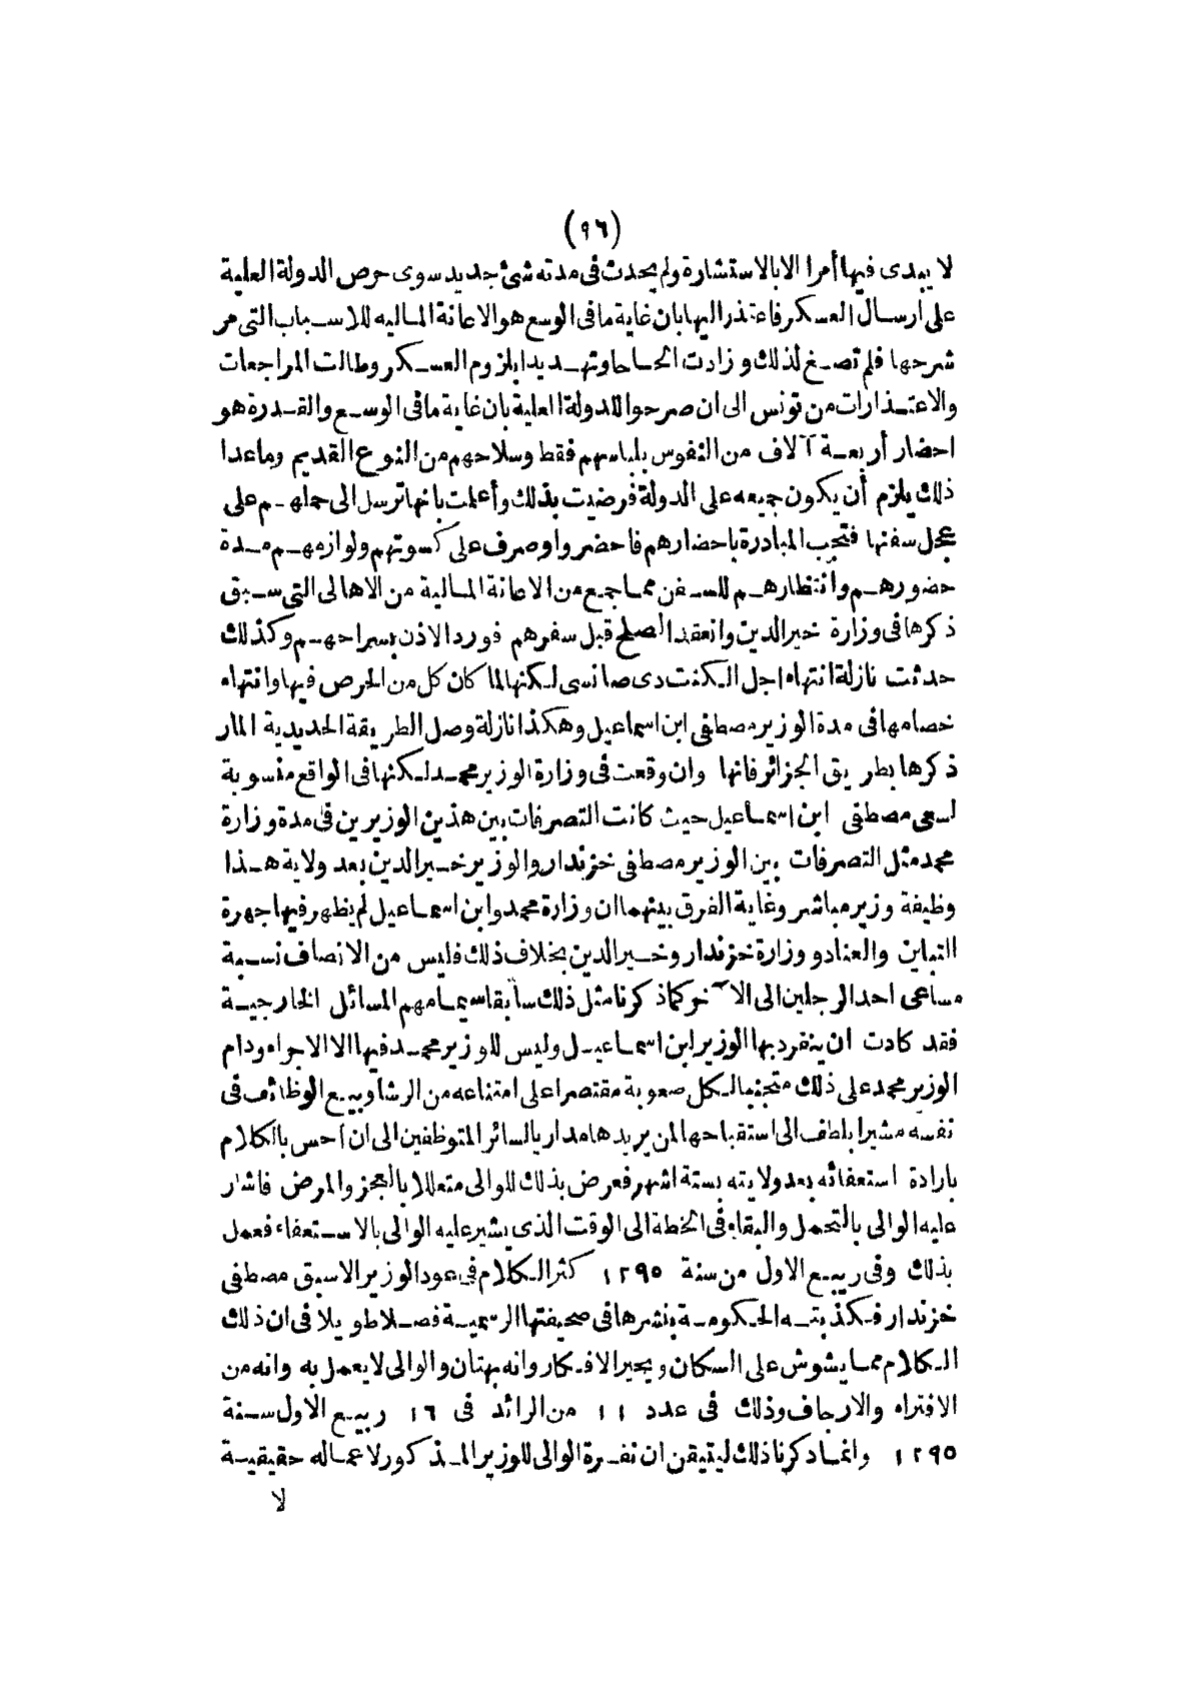 (٩٦)
لا يبدى فيها أمرا الا بالاستشارة ولم يحدث فى مدته شئ جديد سوى حرص الدولة العلية
على ارسال العسكر فاعتذر اليها بان غاية ما فى الوسع هو الاعانة الماليه للاسباب التى مر
شرحها فلم تصغ لذلك وزادت الحاحا وتهديدا بلزوم العسكر وطالت المراجعات
والاعتذارات من تونس الى ان صرحوا للدولة العلية بان غاية ما فى الوسع والقدرة هو
احضار أربعة آلاف من النفوس بلباسهم فقط وسلاحهم من النوع القديم وماعدا
ذلك يلزم أن يكون جميعه على الدولة فرضيت بذلك وأعلمت بانها ترسل الى حملهم على
عجل سفنها فتجب المبادرة باحضارهم فاحضروا وصرف على كسوتهم ولوازمهم مدة
حضورهم وانتظارهم للسفن مما جمع من الاعانة المالية من الاهالى التى سبق
ذكرها فى وزارة خير الدين وانعقد الصلح قبل سفرهم فورد الاذن بسراحهم وكذلك
حدثت نازلة انتهاء اجل الكنت دى صانسى لكنها لما كان كل من الحرص فيها وانتهاء
خصامها فى مدة الوزير مصطفى ابن اسماعيل وهكذا نازلة وصل الطريقة الحديدية المار
ذكرها بطريق الجزائر فانها وان وقعت فى وزارة الوزير محمد لكنها فى الواقع منسوبة
لسعى مصطفى ابن اسماعيل حيث كانت التصرفات بين هذين الوزيرين فى مدة وزارة
محمد مثل التصرفات بين الوزير مصطفى خزندار والوزير خير الدين بعد ولاية هذا
وظيفة وزير مباشر وغاية الفرق بينهما ان وزارة محمد وابن اسماعيل لم يظهر فيها جهرة
التباين والعناد ووزارة خزندار وخير الدين بخلاف ذلك فليس من الانصاف نسبة
مساعى احد الرجلين الى الآخر كما ذكرنا مثل ذلك سابقا سيما مهم المسائل الخارجية
فقد كادت ان ينفرد بها الوزير ابن اسماعيل وليس للوزير محمد فيها الا الاجراء ودام
الوزير محمد على ذلك متجنبا لكل صعوبة مقتصرا على امتناعه من الرشا وبيع الوظائف فى
نفسه مشيرا بلطف الى استقباحها لمن يريدها مداريا لسائر المتوظفين الى ان احس بالكلام
بارادة استعفائه بعد ولايته بستة اشهر فعرض بذلك للوالى متعللا بالعجز والمرض فاشار
عليه الوالى بالتحمل والبقاء فى الخطة الى الوقت الذى يشير عليه الوالى بالاستعفاء فعمل
بذلك وفى ربيع الاول من سنة ١٢٩٥ كثر الكلام فى عود الوزير الاسبق مصطفى
خزندار فكذبته الحكومة بنشرها فى صحيفتها الرسمية فصلا طويلا فى ان ذلك
الكلام مما يشوش على السكان ويحير الافكار وانه بهتان والوالى لا يعمل به وانه من
الافتراء والارجاف وذلك فى عدد ١١ من الرائد فى ١٦ ربيع الاول سنة
١٢٩٥ وانما ذكرنا ذلك ليتيقن ان نفرة الوالى للوزير المذكور لاعماله حقيقية
لا